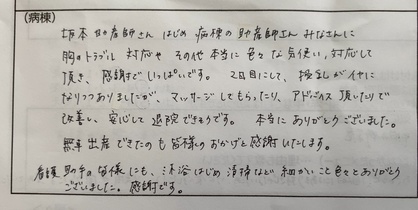 (病棟)
坂本助産師さんはじめ 病棟の助産師さんみなさんに
胸のトラブル対応や その他本当に色々な気使い、対応して
頂き、感謝でいっぱいです。 2回目にして、授乳がイヤに
なりつつありましたが、マッサージしてもらったり、アドバイス頂いたりで
改善し、安心して退院できそうです。 本当にありがとうございました。
無事出産できたのも皆様のおかげと感謝いたします。
看護助手の皆様にも、沐浴はじめ清掃など細かいこと色々とありがとう
ございました。感謝です。